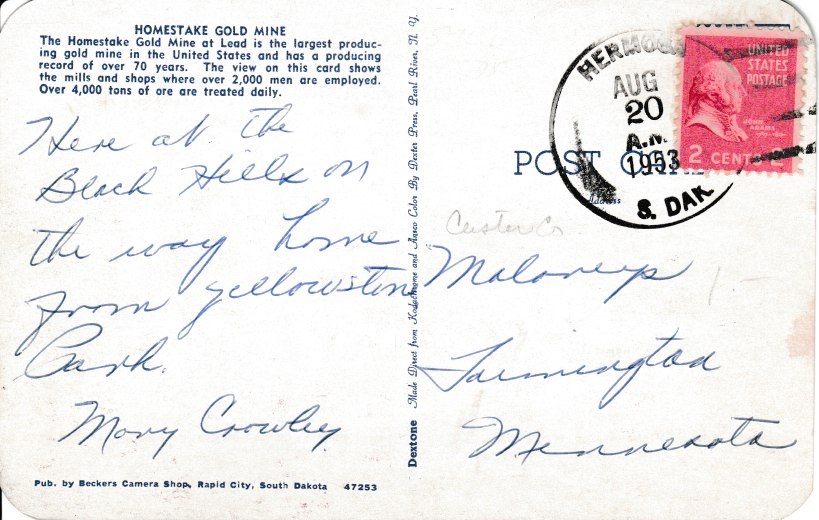 HOMESTAKE GOLD MINE
The Homestake Gold Mine at Lead is the largest produc-
ing gold mine in the United States and has a producing
record of over 70 years. The view on this card shows
the mills and shops where over 2,000 men are employed.
Over 4,000 tons of ore are treated daily.
Here at the
Black Hills on
the way home
from Yellowstone
Park.
Mary Crowley
Pub. by Beckers Camera Shop, Rapid City, South Dakota 47253
Dextone Made Direct from Kodachrome and Ansco Color By Dexter Press, Pearl River, N. Y.
AUG
20
A.M.
1953
S. DAK
UNITED
STATES
POSTAGE
JOHN
ADAMS
2 CENTS 2
POST CARD
Address
Custer Co
Maloneys
1-
Farmington
Minnesota